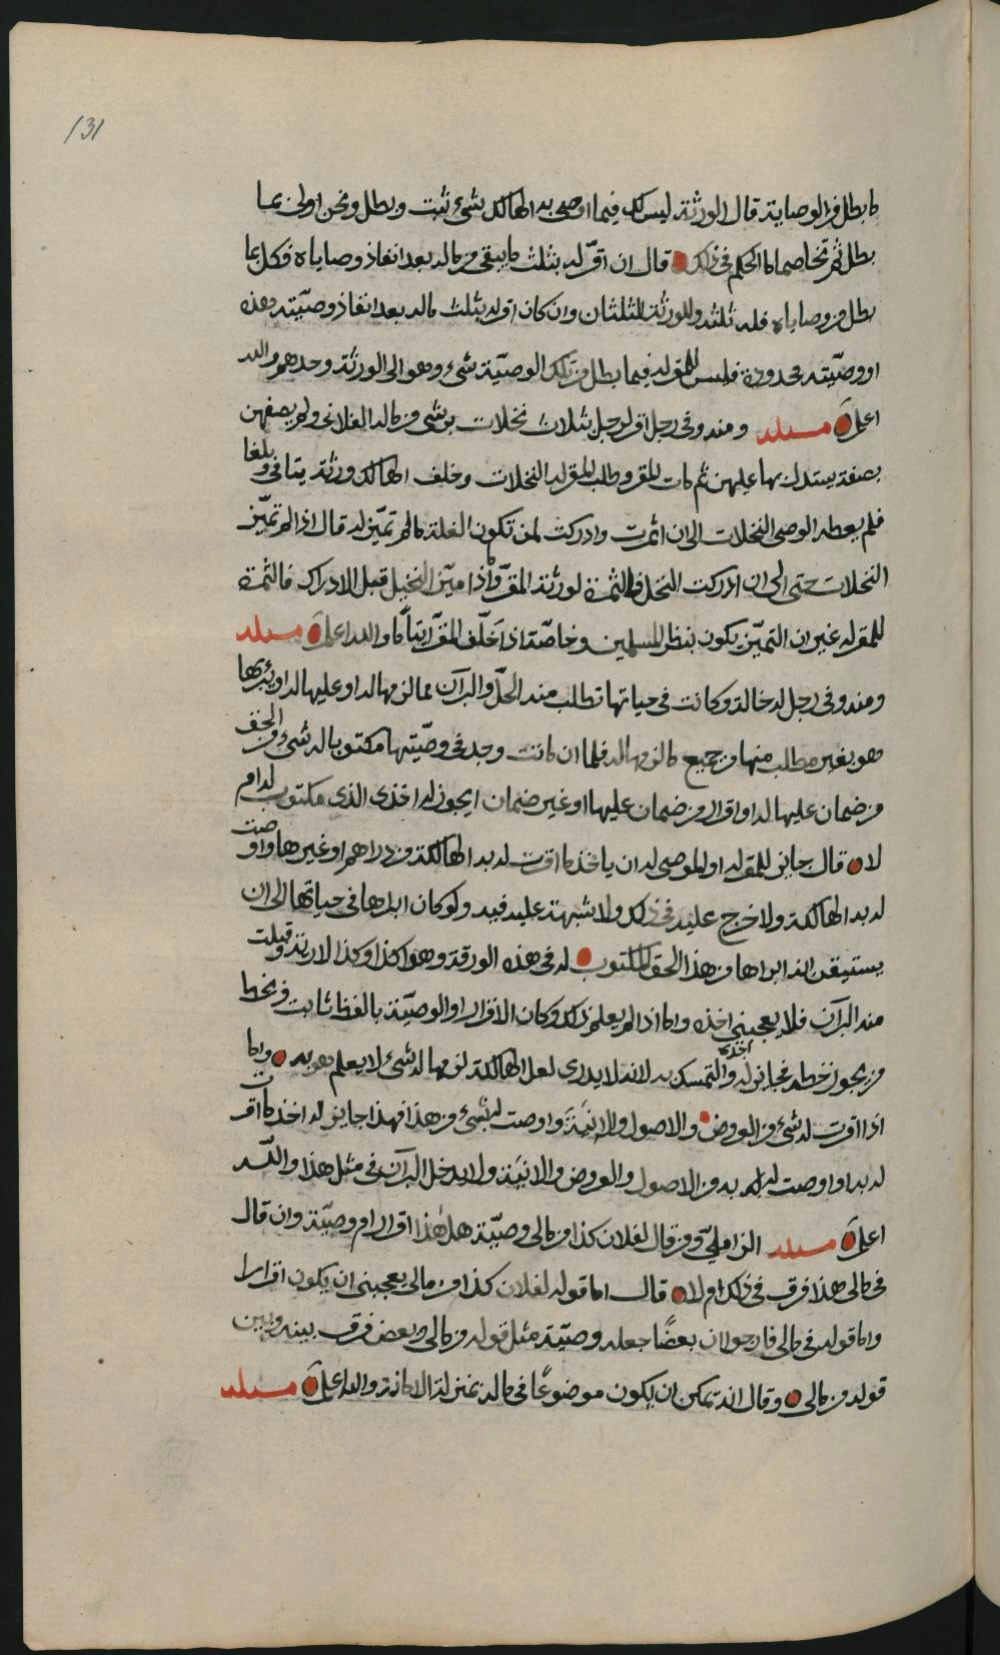 131
ما بطل من الوصاية قال الورثة ليس لك فيما اوصى به الهالك بشيء ثبت وبطل ونحن اولى بما
بطل ثم تخاصما ما الحكم في ذلك قال ان اقرّ له بثلث ما يبقى من ماله بعد انفاذ وصاياه فكل ما
بطل من وصاياه فله ثلثه وللورثة الثلثان وان كان اقر له بثلث ماله بعد انفاذ وصيّته هذه
او وصيّته محدودة فليس للمقر له فيما بطل من تلك الوصيّة شيء وهو الى الورثة وحدهم والله
اعلم مسئله ومنه وفي رجل اقر لرجل بثلاث نخلات برشى من ماله الفلاني ولم يصفهن
بصفة يستدل بها عليهن ثم مات المقر وطلب المقر له النخلات وخلف الهالك ورثة يتامى وبلغا
فلم يعطه الوصي النخلات الى ان اثمرت وادركت لمن تكون الغلة ما لم تميّز له قال اذا لم تميّز
النخلات حتى الى ان ادركت النخل فالثمرة لورثة المقرّ واذا ميّز النخيل قبل الادراك فالثمرة
للمقر له غير ان التميّز يكون بنظر المسلمين وخاصّة اذا خلّف المقرّ ايتاما والله اعلم مسئله
ومنه وفي رجل له خالة وكانت في حياتها تطلب منه الحلّ والبرآن مما لزمها له او عليها له او يبريها
هو بغير مطلب منها من جميع ما لزمها له فلما ان ماتت وجد في وصيّتها مكتوبا له شيء من الحق
من ضمان عليها له او اقرار من ضمان عليها او غير ضمان ايجوز له اخذ الذي مكتوب له ام
لا قال جايز للمقر له او الموصى له ان ياخذ ما اقرت له به الهالكة من دراهم او غيرها واوصت
له به الهالكة ولا حرج عليه في ذلك ولا شبهة عليه فيه ولو كان ابراها في حياتها الى ان
يستيقن انه ابراها من هذا الحق المكتوب له في هذه الورقة وهو كذا وكذا لارية وقبلت
منه البرآن فلا يعجبني اخذه واما اذا لم يعلم ذلك وكان الاقرار او الوصيّة بالفظ ثابت وبخط
من يجوز خطه فجايز له اخذه والتمسك به لانه لا يدرى لعل الهالكة لزمها له شيء لا يعلم هو به واما
اذا اقرت له شيء من العروض والاصول والانيَة واوصت له بشيء من هذا فهذا جايز له اخذ ما اقرت
له به او اوصت له به من الاصول والعروض والانية ولا يدخل البرآن في مثل هذا والله
اعلم مسئله الزاملي ومن قال لفلان كذا من مالي وصيّة هل هذا اقرار ام وصيّة وان قال
في مالي هذا فرق في ذلك ام لا قال اما قوله لفلان كذا من مالي يعجبني ان يكون اقرارا
واما قوله في مالي فارجو ان بعضًا جعله وصيّة مثل قوله من مالي وبعض فرق بينه وبين
قوله من مالي وقال انه يمكن ان يكون موضوعًا في ماله بمنزلة الامانة والله اعلم مسئله